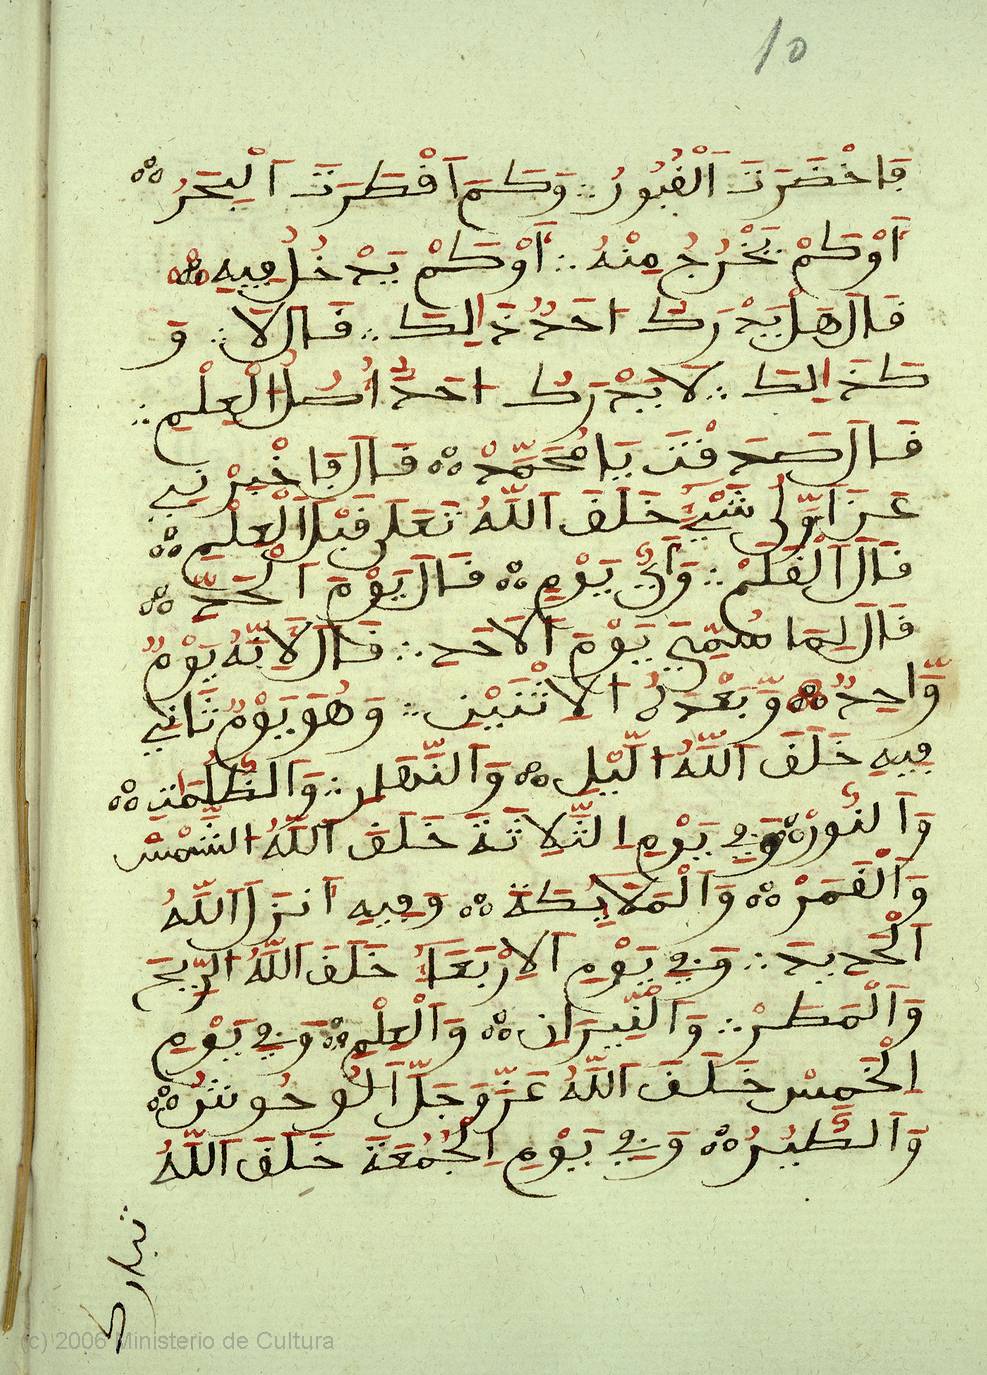 10
فَاخْضَرَتَ اَلْقُبُورُ ∴ وَكَمَ اَفْطَرَتَ اَلْبَحَرُ
اَوْكَمْ يَخْرُجُ مِنْهُ ∴ اَوْكَمْ يَدْخُلُ فِيهِ
فَالَ هَلْ يَدْرَكُ احَدٌ ذَالِكَ ∴ فَالَ لَا ∴ وَ
كَذَالِكَ ∴ لَا يَدْرَكُ احَدٌ اُصُلُ الْعِلْمِ ∴
فَالَ صَدَفْتَ يَا مُحَمَّدْ فَالَ فَاخْبِرْنِي
عَنَ اَوَّلِ شَيْءٍ خَلَقَ اَللَّهُ تَعَلَى فَبْلَ الْعِلْمِ
فَالَ اَلْفَلَمْ ∴ وَاَيُّ يَوْمٍ فَالَ يَوْمَ اَلْحَدِّ
فَالَ لِمَا سُمِّيَ يَوْمَ اَلَاحَدِ ∴ فَالَ لِاَنَّهُ يَوْمٌ
وَّاحِدٌ وَّبَعْدَهُ الِاثْنَيْنِ ∴ وَهُوَ يَوْمٌ ثَانِي
فِيهِ خَلَقَ اَللَّهُ الَّيْلِ وَالنَّهَارِ ∴ وَالظُّلُمَتِ
وَاَلنُّورْ وَفِي يَوْمِ الثَّلَاثَةَ خَلَقَ اَللَّهُ الشَّمْسْ
وَاَلْقَمَرْ وَاَلْمَلَايِكَةَ وَفِيهِ اَنزَلَ اَللَّهُ
اَلْحَدِيدَ ∴ وَفِي يَوْمِ اَلِارْبَعَاءِ خَلَقَ اَللَّهُ الرِّيحَ
وَاَلْمَطَرْ ∴ وَاَلنِّيرَانِ وَاَلْعِلْمِ وَفِي يَوْمِ
اِلْخَمِسْ خَلَقَ اَللَّهُ عَزَّ وَجَلَّ اَلْوُحُوشُ
وَاَلطُّيُرُ وَفِي يَوْمِ اِلْجُمُعَةَ خَلَقَ اَللَّهُ
تبارك
(c) 2006 Ministerio de Cultura